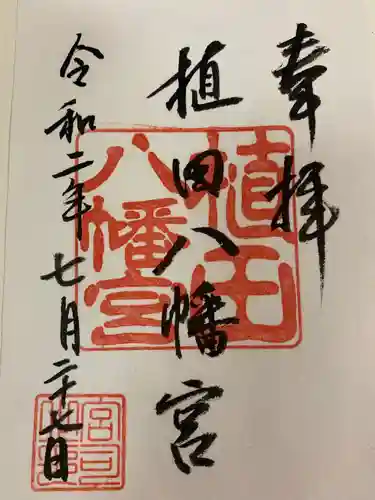 奉拝
植田八幡宮
令和二年七月二十七日
植田八幡宮
宮司之印